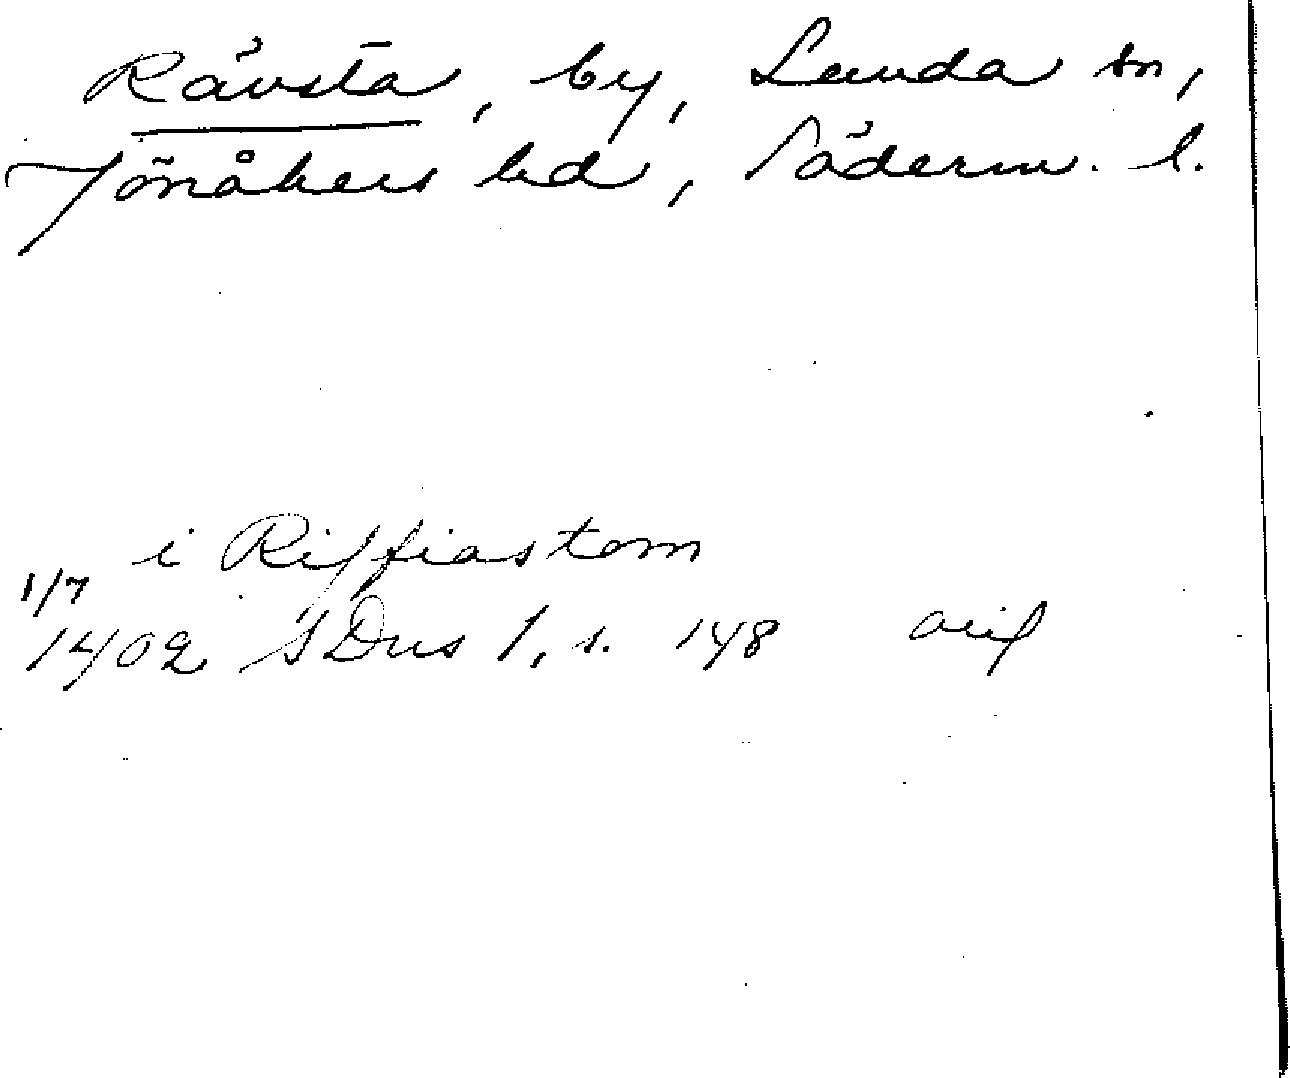 Rävsta, by, Lunda sn,
Jönåkers hd, Söderm. l.
i Riffiastom
1/7
1402 SDns 1, s. 148 orig